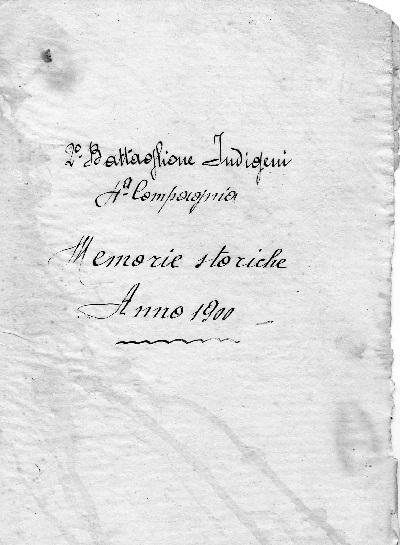 2º Battaglione Indigeni
4ª Compagnia
Memorie storiche
Anno 1900